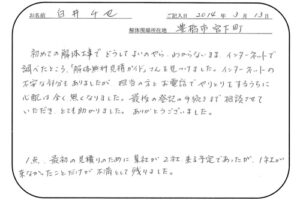 お名前 白井 ご記入日 2014年 3月 13日
解体現場所在地 豊橋市宮下町
初めての解体工事でどうしてよいのやら わからないまま インターネットで
調べたところ、「解体無料見積ガイド」さんを見つけました。インターネットの
不安な部分もありましたが 担当の方と お電話で やりとりをするうちに
心配は全く無くなりました。最後の登記の手続きまで 相談させて
いただき とても助かりました。ありがとうございました。
1点、最初の見積りのために 業社が 2社 来る予定であったが、1社が
来なかったことだけが 不満として 残りました。